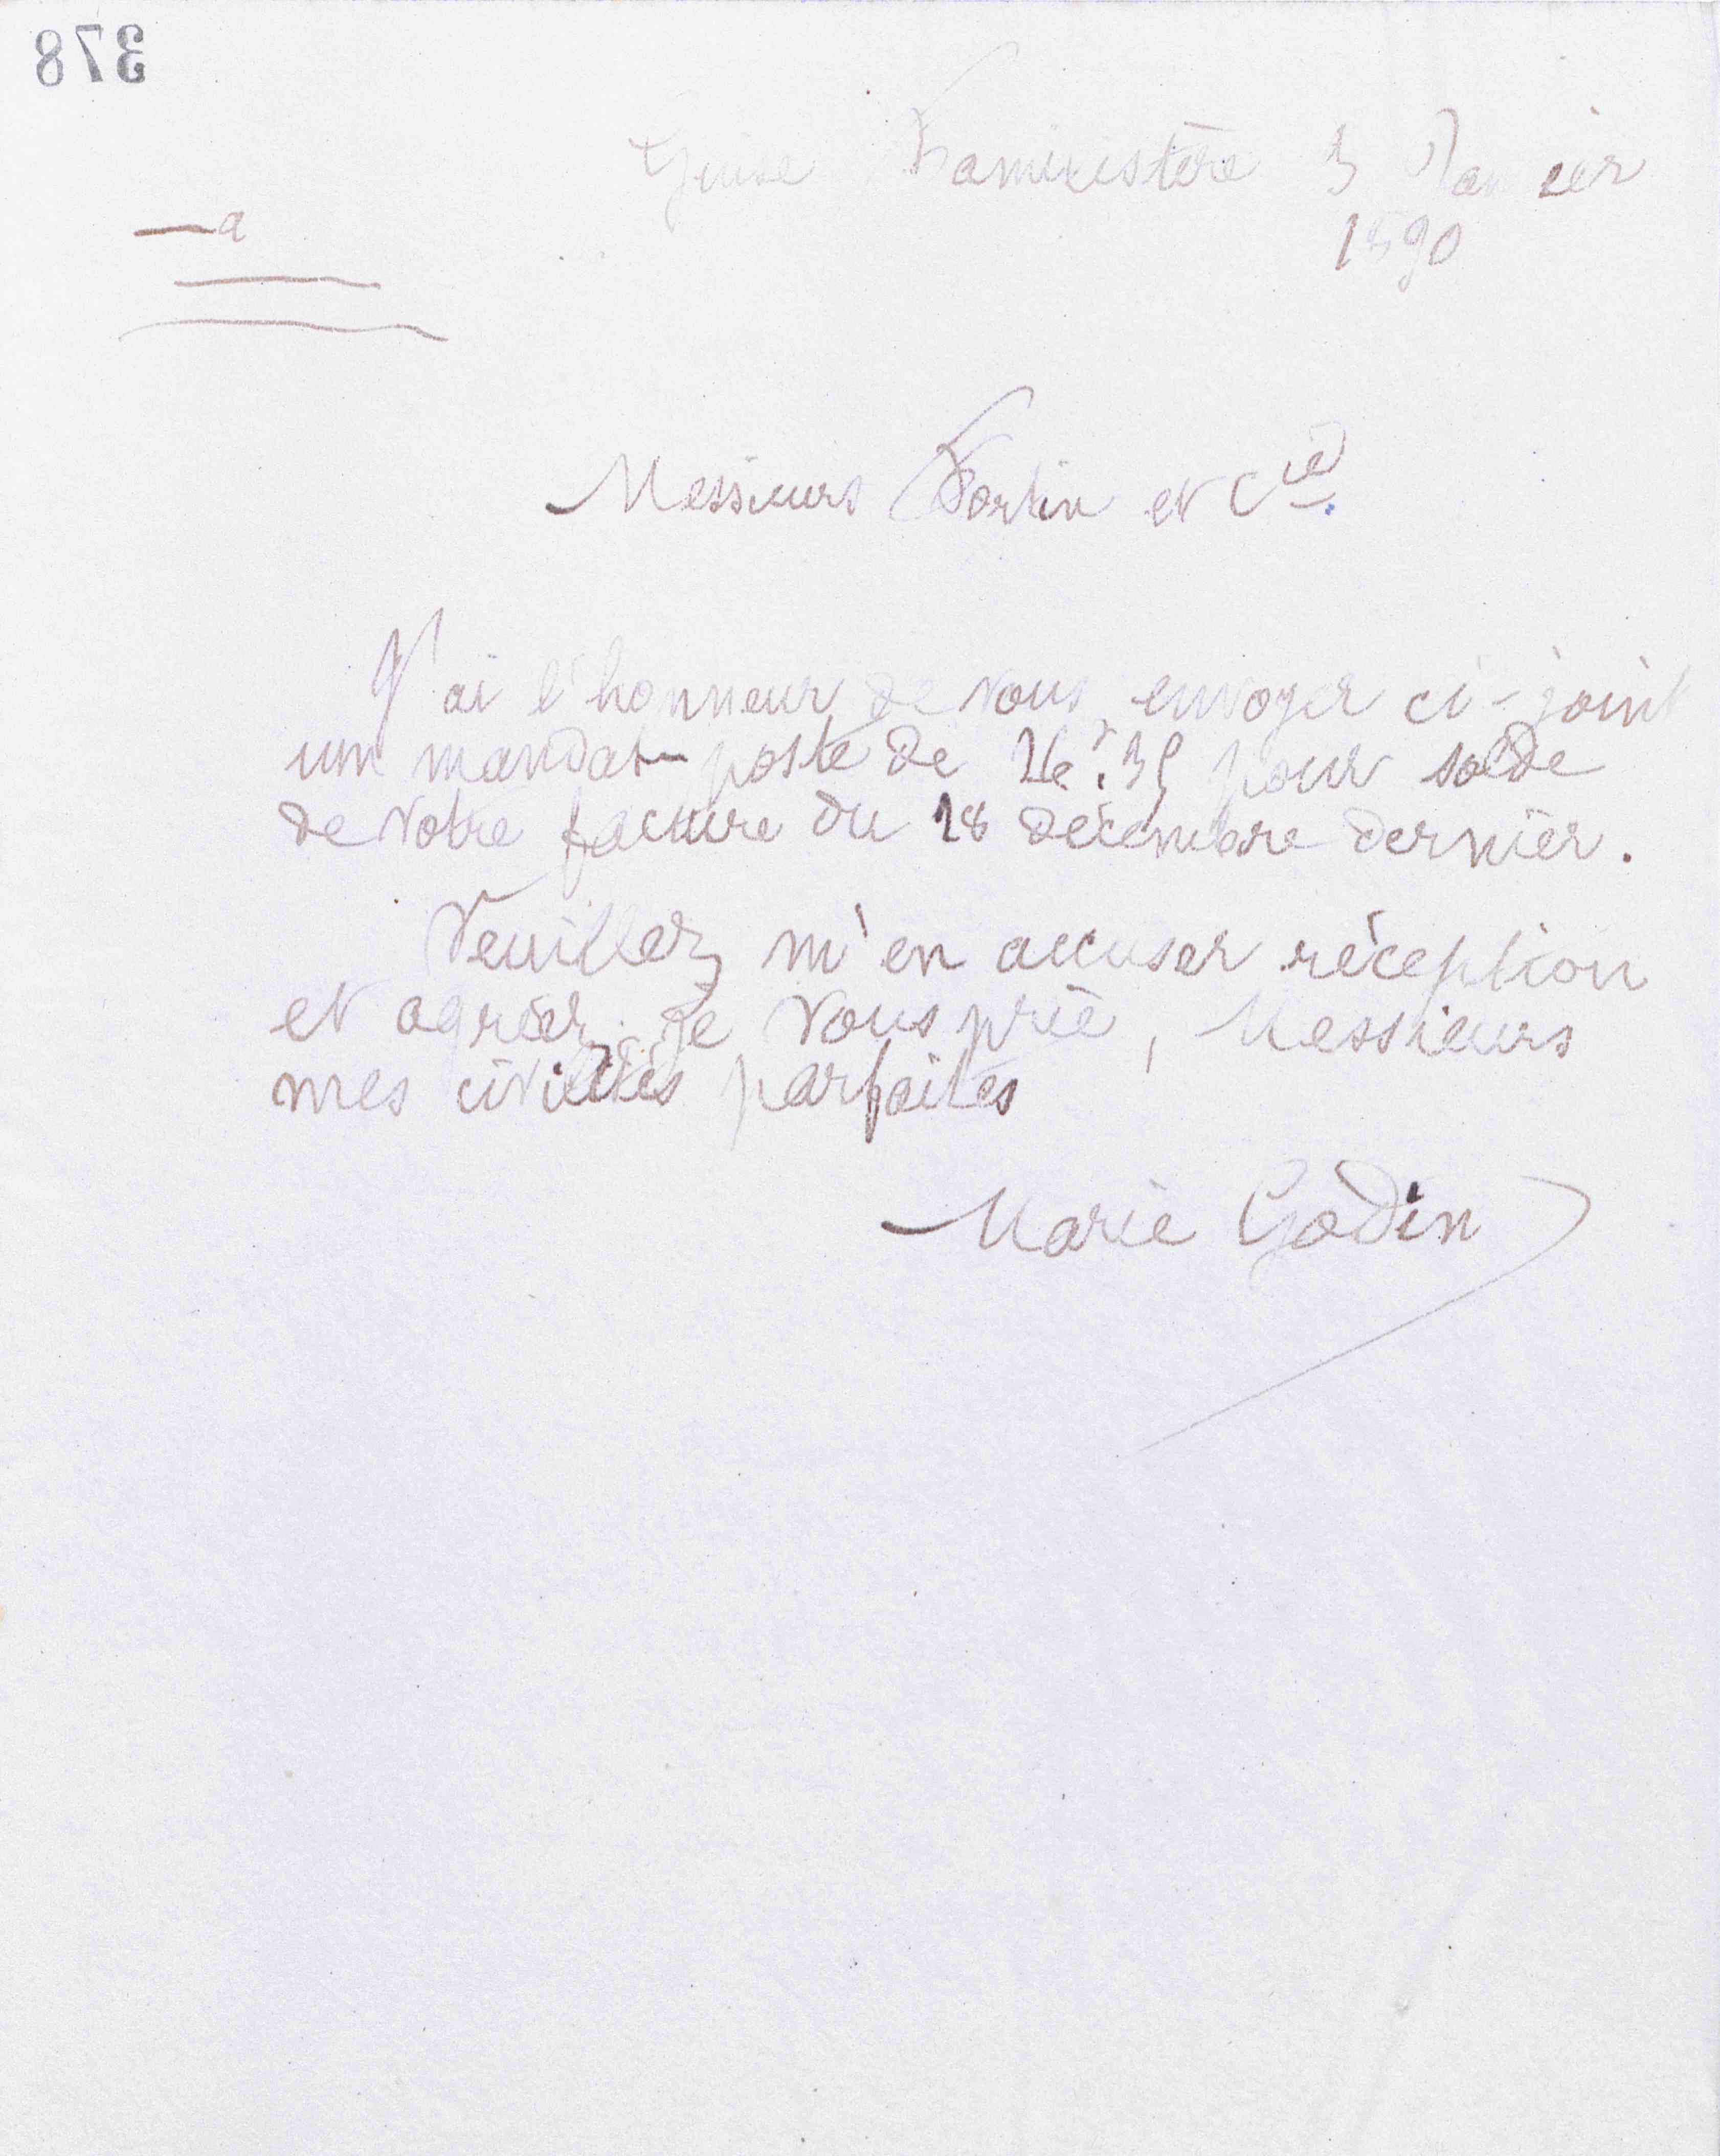 378
Guise Familistère 3 Janvier
1890
Messieurs Fortin et Cie.
J'ai l'honneur de vous envoyer ci-joint
un mandat-poste de 26f.35 pour solde
de votre facture du 18 décembre dernier.
Veuillez m'en accuser réception
et agréer, je vous prie, Messieurs
mes civilités parfaites
Marie Godin